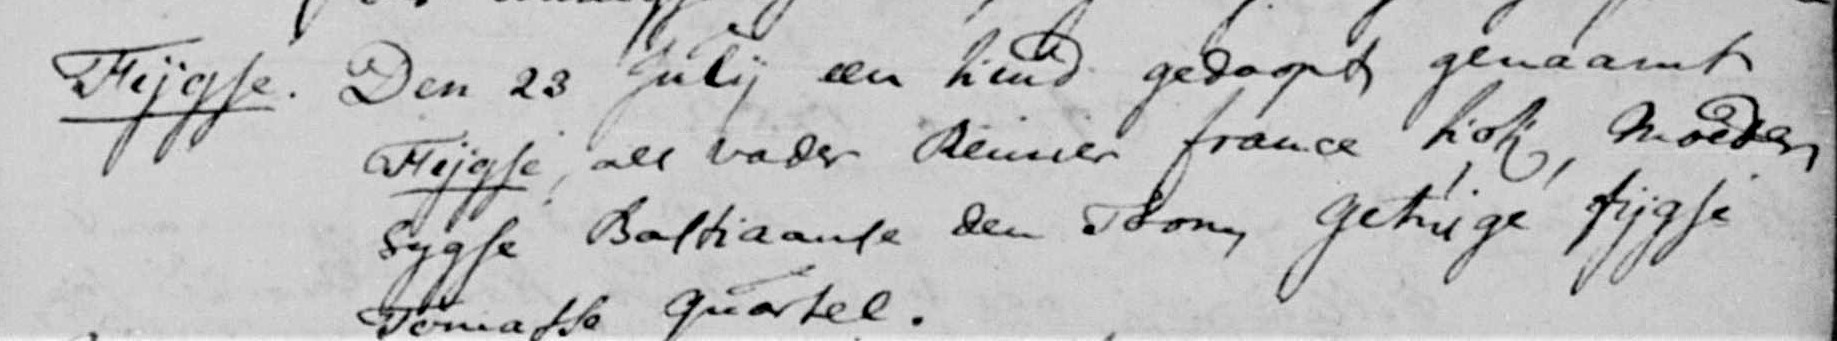 Fijgse. Den 23 Julij een kind gedoopt genaamt
Fijgse, als vader Reinier france kok, Moeder
Sygse Bastiaanse den Boom, Getuige fijgse
Tomasse quartel.